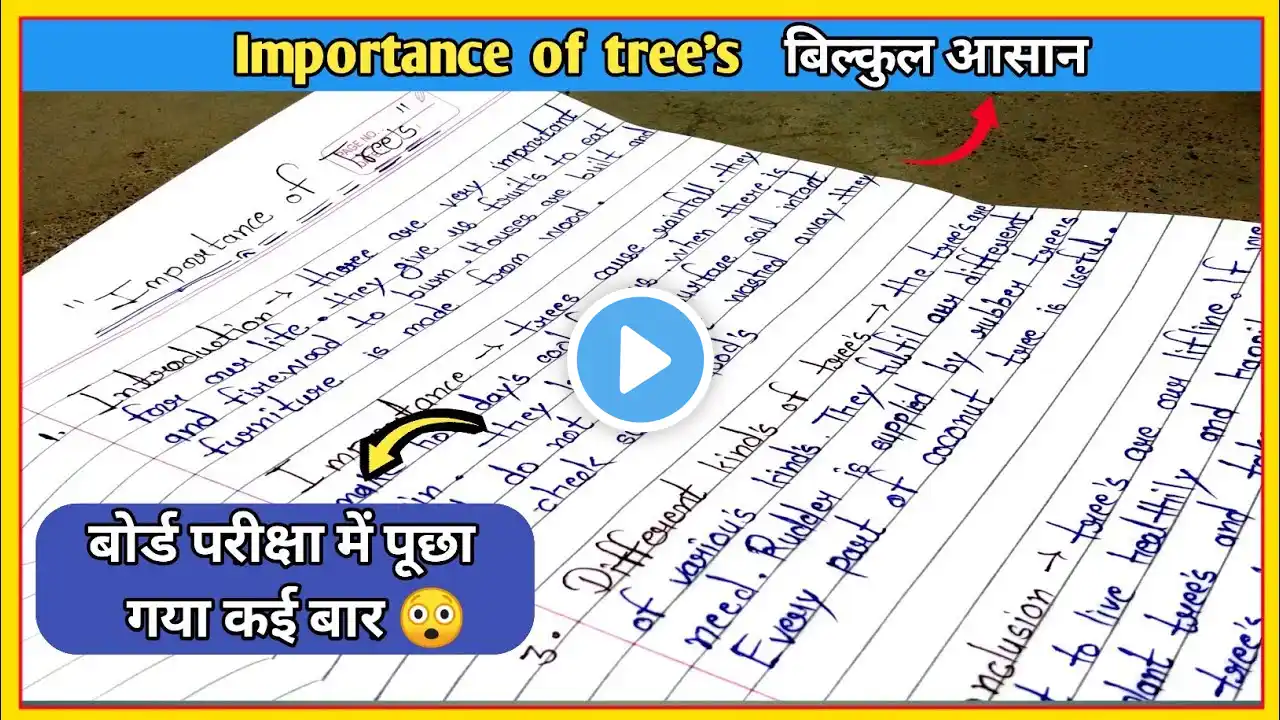 Importance of tree's बिल्कुल आसान
PAGE NO.
"Importance of Tree's"
1. Introduction → there are very important
for our life. they give us fruit's to eat
and firewood to burn. Houses are built and
furniture is made from wood.
Importance → trees cause rainfall. they
make day's . when there is
in. they surface soil intact
do not wasted away. they
cheak
3. Different kind's of tree's → the tree's are
of variou's kind's. They fulfil our different
need. Rudder is supplied by rubber tree's
Every part of coconut tree is useful..
nclusion → tree's are our lifline. If we
to live healthily and
plant tree's and
tree's
बोर्ड परीक्षा में पूछा
गया कई बार 😲